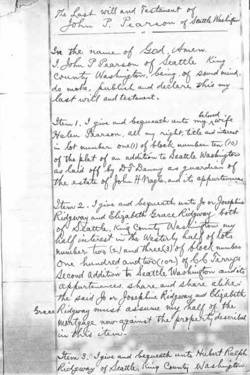 The Last will and Testament of
John P. Pearson of Seattle Washington
In the name of God Amen
I, John P Pearson of Seattle King
County Washington, being of sound mind,
do make, publish and declare this my
last will and testament.
beloved
Item 1. I give and bequeath unto my wife
Helen Pearson, all my right, title and interest
in lot number one (1) of block number ten (10)
of the plat of an addition to Seattle Washington
as laid off by D T Denny as guardian of
the estate of John H Nagle, and its appurtenances.
Item 2. I give and bequeath unto Jo'n Josephine
Ridgeway and Elizabeth Grace Ridgway, both
of Seattle, King County Washington, my
half interest in the Westerly half of lots
number two (2) and three (3) of block number
One hundred and two (102) of
Second addition to Seattle Washington and its
appurtenances, share and share alike
the said Jo'n Josephine Ridgway and Elizabeth
Grace Ridgway must assume my half of the
mortgage now against the property described
in this item.
Item 3. I give and bequeath unto Hubert Ralph
Ridgway of Seattle, King County, Washington